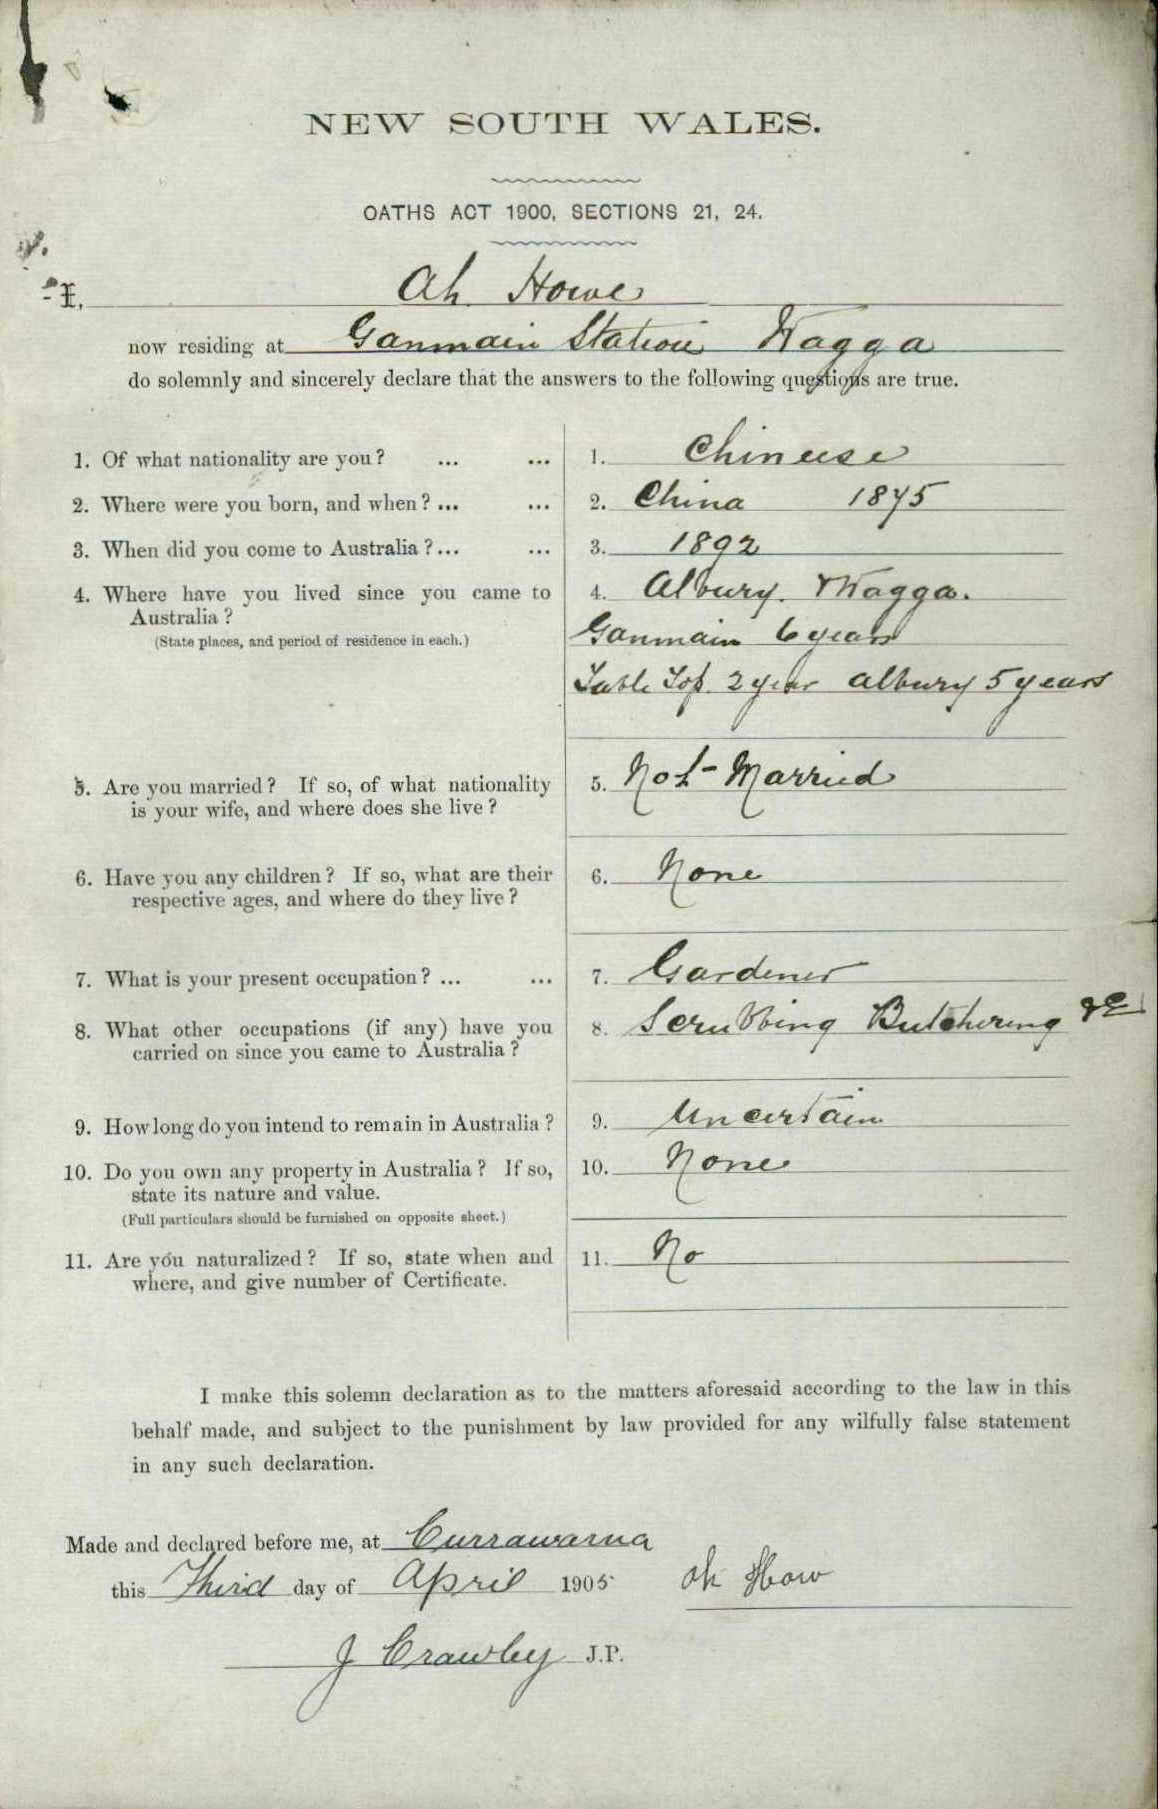 NEW SOUTH WALES.
OATHS ACT 1900, SECTIONS 21, 24.
I, Ah Howe
now residing at Ganmain Station Wagga
do solemnly and sincerely declare that the answers to the following questions are true.
1. Of what nationality are you? ... ... 1. Chineese
2. Where were you born, and when? ... ... 2. China 1875
3. When did you come to Australia? ... ... 3. 1892
4. Where have you lived since you came to 4. Albury. & Wagga.
Australia?
(State places, and period of residence in each.) Ganmain 6 years
Table Top. 2 year albury 5 years
5. Are you married? If so, of what nationality 5. Not Married
is your wife, and where does she live?
6. Have you any children? If so, what are their 6. None
respective ages, and where do they live?
7. What is your present occupation? ... ... 7. Gardener
8. What other occupations (if any) have you 8. Scrubbing Butchering &c
carried on since you came to Australia?
9. How long do you intend to remain in Australia? 9. Uncertain
10. Do you own any property in Australia? If so, 10. None
state its nature and value.
(Full particulars should be furnished on opposite sheet.)
11. Are you naturalized? If so, state when and 11. No
where, and give number of Certificate.
I make this solemn declaration as to the matters aforesaid according to the law in this
behalf made, and subject to the punishment by law provided for any wilfully false statement
in any such declaration.
Made and declared before me, at Currawarna
this Third day of April 1905 Ah How
J Crawley J.P.